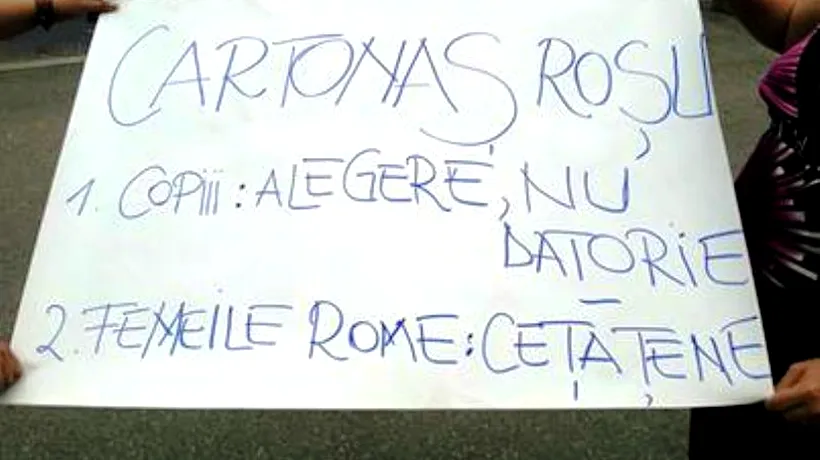 CARTONAȘ ROȘU
1. COPiii : ALEGERE, NU
DATORiE
2. FEMEILE ROME : CEȚĀȚENE